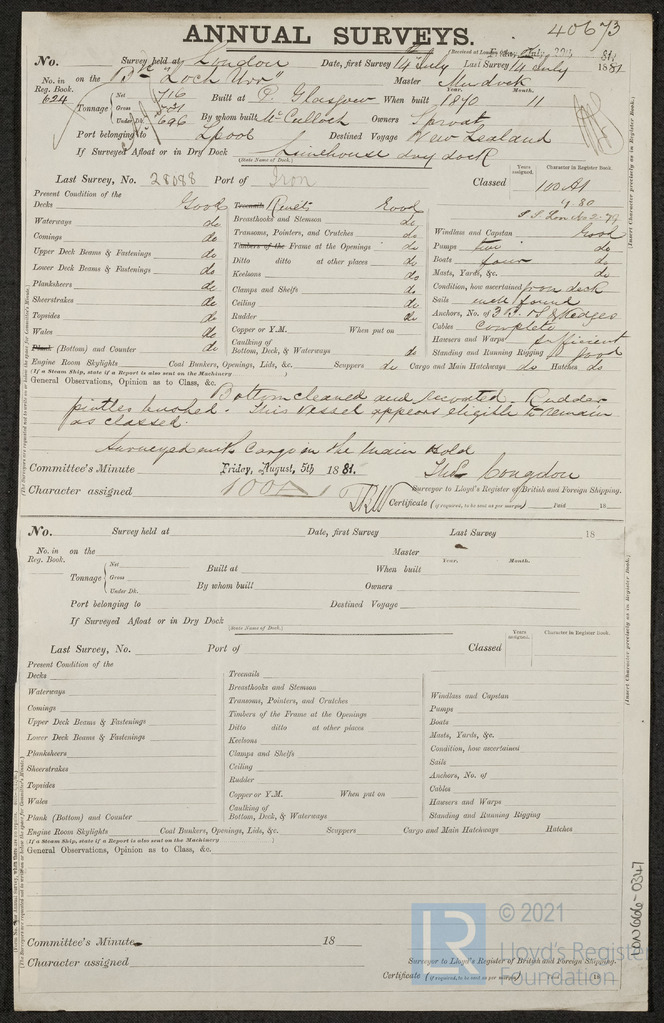 ANNUAL SURVEYS.
40673
(Received at London
No. Survey held at London Date, first Survey 14 July Last Survey 14 July 1881
No. in Reg. Book. 624 on the "Loch Urr" Master Murdock
Tonnage Net 716 Gross Under Dk. 696 Built at P. Glasgow When built Year. 1870 Month. 11
By whom built McCulloch Owners Sproat
Port belonging to L'pool Destined Voyage New Zealand
If Surveyed Afloat or in Dry Dock Limehouse dry dock
(State Name of Dock.)
Last Survey, No. 28088 Port of Iron Classed Years assigned. Character in Register Book. 100 A1
Present Condition of the
Decks Good Treenails Rivets Good
Waterways do Breasthooks and Stemson do Windlass and Capstan Good
Comings do Transoms, Pointers, and Crutches do Pumps two do
Upper Deck Beams & Fastenings do Timbers of the Frame at the Openings do Boats four do
Lower Deck Beams & Fastenings do Ditto ditto at other places do Masts, Yards, &c. do
Planksheers do Keelsons do Condition, how ascertained from deck
Sheerstrakes do Clamps and Shelfs do Sails well found
Topsides do Ceiling do Anchors, No. of & Kedges
Wales do Rudder do Cables Complete
Plank (Bottom) and Counter do Copper or Y.M. When put on Hawsers and Warps Sufficient
Caulking of Bottom, Deck, & Waterways do Standing and Running Rigging good
Engine Room Skylights Coal Bunkers, Openings, Lids, &c. Scuppers do Cargo and Main Hatchways do Hatches do
(If a Steam Ship, state if a Report is also sent on the Machinery )
General Observations, Opinion as to Class, &c.
Bottom cleaned and recoated. Rudder
pintles bushed. This vessel appears eligible to remain
as classed.
Surveyed with Cargo in the Main Hold
Committee's Minute Friday, August, 5th 1881. Thos Congdon
Character assigned 100A1 Surveyor to Lloyd's Register of British and Foreign Shipping.
Certificate (if required, to be sent as per margin) Paid 18
(Insert Character precisely as in Register Book.)
No. Survey held at Date, first Survey Last Survey 18
No. in Reg. Book. on the Master
Tonnage Net Gross Under Dk. Built at When built Year. Month.
By whom built Owners
Port belonging to Destined Voyage
If Surveyed Afloat or in Dry Dock
(State Name of Dock.)
Last Survey, No. Port of Classed Years assigned. Character in Register Book.
Present Condition of the
Decks Treenails
Waterways Breasthooks and Stemson Windlass and Capstan
Comings Transoms, Pointers, and Crutches Pumps
Upper Deck Beams & Fastenings Timbers of the Frame at the Openings Boats
Lower Deck Beams & Fastenings Ditto ditto at other places Masts, Yards, &c.
Planksheers Keelsons Condition, how ascertained
Sheerstrakes Clamps and Shelfs Sails
Topsides Ceiling Anchors, No. of
Wales Rudder Cables
Plank (Bottom) and Counter Copper or Y.M. When put on Hawsers and Warps
Caulking of Bottom, Deck, & Waterways Standing and Running Rigging
Engine Room Skylights Coal Bunkers, Openings, Lids, &c. Scuppers Cargo and Main Hatchways Hatches
(If a Steam Ship, state if a Report is also sent on the Machinery )
General Observations, Opinion as to Class, &c.
Committee's Minute 18
Character assigned Surveyor to Lloyd's Register of British and Foreign Shipping.
Certificate (if required, to be sent as per margin) Paid 18
(Insert Character precisely as in Register Book.)
LON666-0347
LR © 2021
Lloyd's Register
Foundation